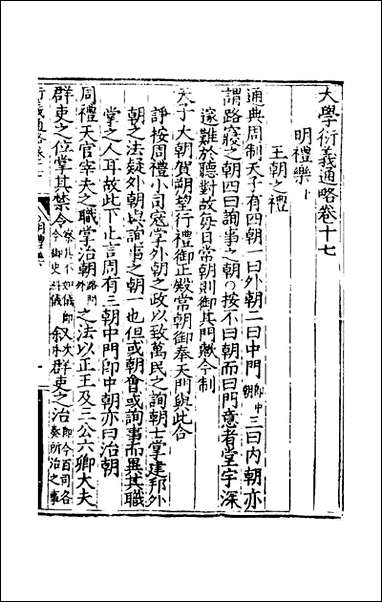 大學衍義通略卷十七
明禮樂上
王朝之禮
通典周制天子有四朝一曰外朝二曰中門即中朝三曰内朝亦
謂路寢之朝四曰詢事之朝○按不曰朝而曰門意者堂宇深
邃難於聽對故每日常朝則御其門歟今制
天子大朝賀朔望行禮御正殿常朝御奉天門與此合
諍按周禮小司寇掌外朝之政以致萬民之詢朝士掌建邦外
朝之法疑外朝與詢事之朝一也但或朝會或詢事而異其職
掌之人耳故此下止言周有三朝中門即中朝亦曰治朝
周禮天官宰夫之職掌治朝路門外之法以正王及三公六卿大夫
群吏之位掌其禁令察其不如儀即今御史糾儀叙次群吏之治即今百司各奏所治之事